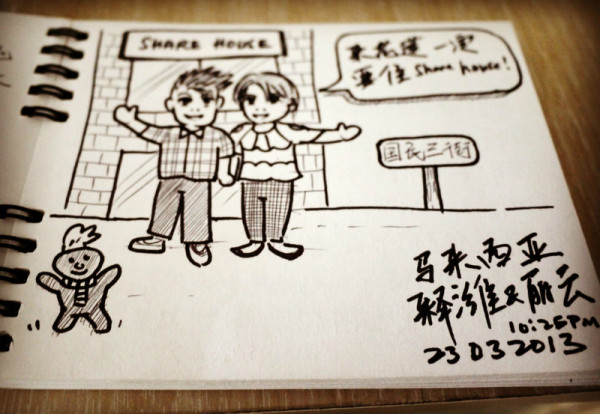 SHARE HOUSE
来花莲一定
要住Share house!
国民三街
马来西亚
释潍&丽云
10:25PM
23 03 2013